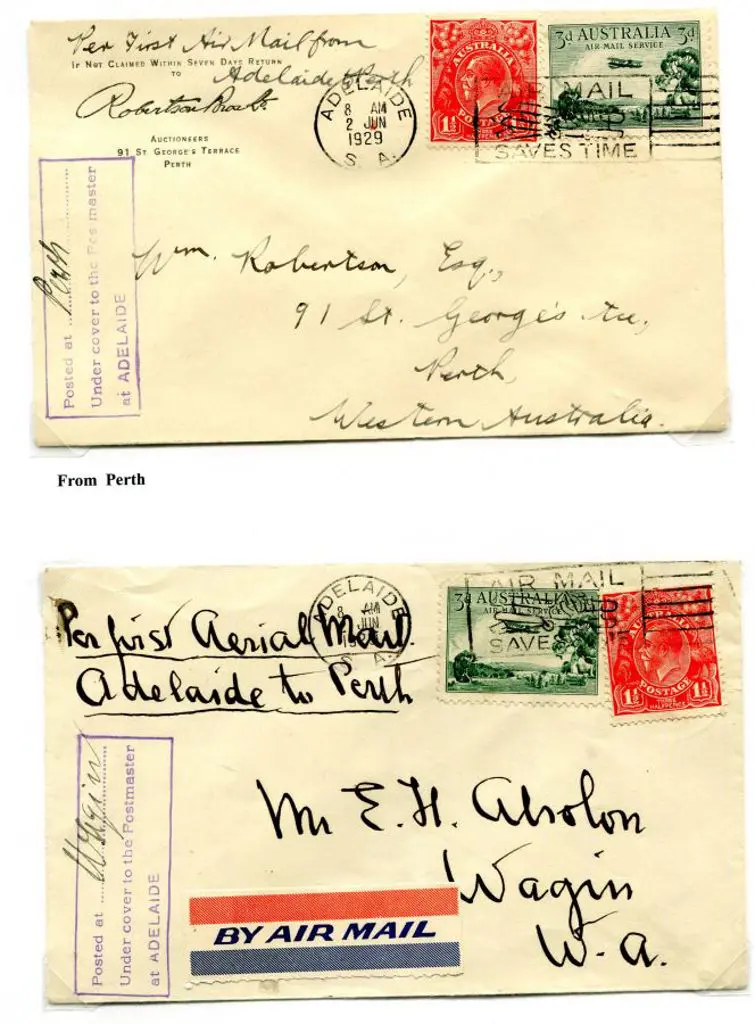 Per First Air Mail from
Adelaide Perth
If Not Claimed Within Seven Days Return
to
Robertson Bros Ld.
Auctioneers
91 St. George's Terrace
Perth
ADELAIDE
8 AM
2 JUN
1929
S. A.
AUSTRALIA
POSTAGE
1½
3d AUSTRALIA 3d
AIR MAIL SERVICE
AIR MAIL
SAVES TIME
Posted at Perth
Under cover to the Postmaster
at ADELAIDE
Wm. Robertson, Esq.,
91 St. George's Ter.,
Perth,
Western Australia.
From Perth
Per first Aerial Mail.
Adelaide to Perth
ADELAIDE
8 AM
JUN
S. A.
3d AUSTRALIA
AIR MAIL SERVICE
AIR MAIL
SAVES
AUSTRALIA
POSTAGE
1½ 1½
THREE
HALFPENCE
Posted at Wagin
Under cover to the Postmaster
at ADELAIDE
Mr E. H. Absolon
Wagin
W. A.
BY AIR MAIL